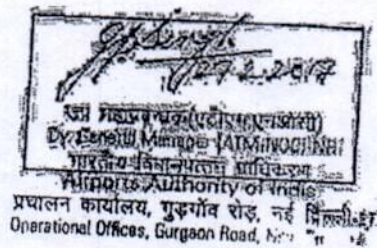 27.2.2017
उप महाप्रबन्धक(एटीएम-एनओसी)
Dy. General Manager (ATM-NOC) NR
भारतीय विमानपत्तन प्राधिकरण
Airports Authority of India
प्रचालन कार्यालय, गुड़गाँव रोड़, नई दिल्ली-37
Operational Offices, Gurgaon Road,